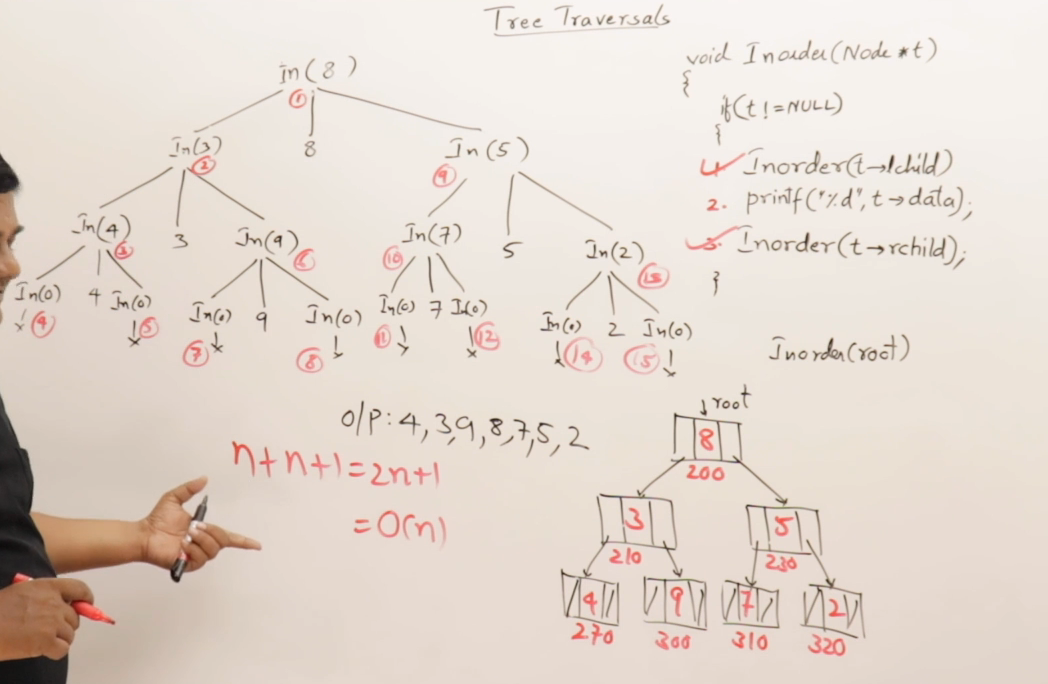 Tree Traversals
In(8)
①
In(3) 8 In(5)
② ⑨
In(4) 3 In(9) In(7) 5 In(2)
③ ⑥ ⑩ ⑬
In(0) 4 In(0) In(0) 9 In(0) In(0) 7 In(0) In(0) 2 In(0)
④ ⑤ ⑦ ⑧ ⑪ ⑫ ⑭ ⑮
void Inorder(Node *t)
{
if(t != NULL)
{
1. Inorder(t→lchild)
2. printf("%d", t→data);
3. Inorder(t→rchild);
}
Inorder(root)
O/P: 4, 3, 9, 8, 7, 5, 2
n+n+1=2n+1
=O(n)
root
8
200
3 5
210 230
4 9 7 2
270 300 310 320